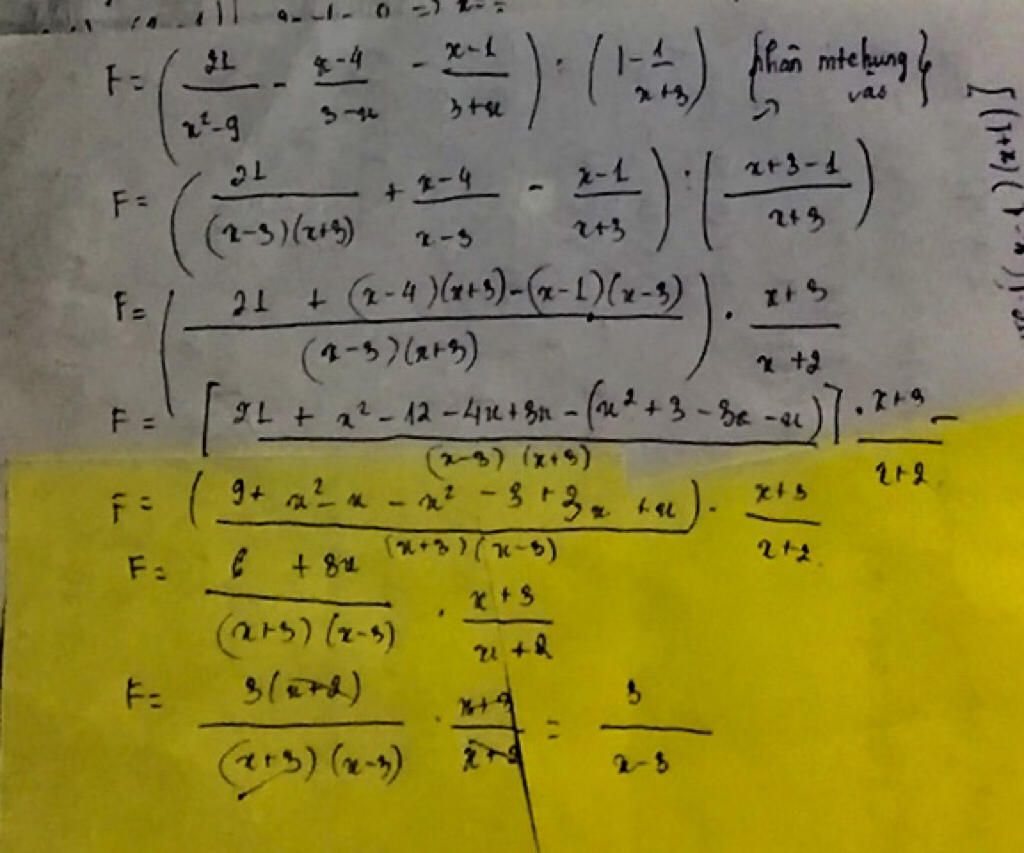 F = ( 21/(x²-9) - (x-4)/(3-x) - (x-1)/(3+x) ) : ( 1 - 1/(x+3) )
F = ( 21/((x-3)(x+3)) + (x-4)/(x-3) - (x-1)/(x+3) ) : ( (x+3-1)/(x+3) )
F = ( (21 + (x-4)(x+3) - (x-1)(x-3))/((x-3)(x+3)) ) . (x+3)/(x+2)
F = [ (21 + x² - 12 - 4x + 3x - (x² + 3 - 3x - x))/((x-3)(x+3)) ] . (x+3)/(x+2)
F = ( (9 + x² - x - x² - 3 + 3x + x)/((x+3)(x-3)) ) . (x+3)/(x+2)
F = (6 + 3x)/((x+3)(x-3)) . (x+3)/(x+2)
F = 3(x+2)/((x+3)(x-3)) . (x+3)/(x+2) = 3/(x-3)